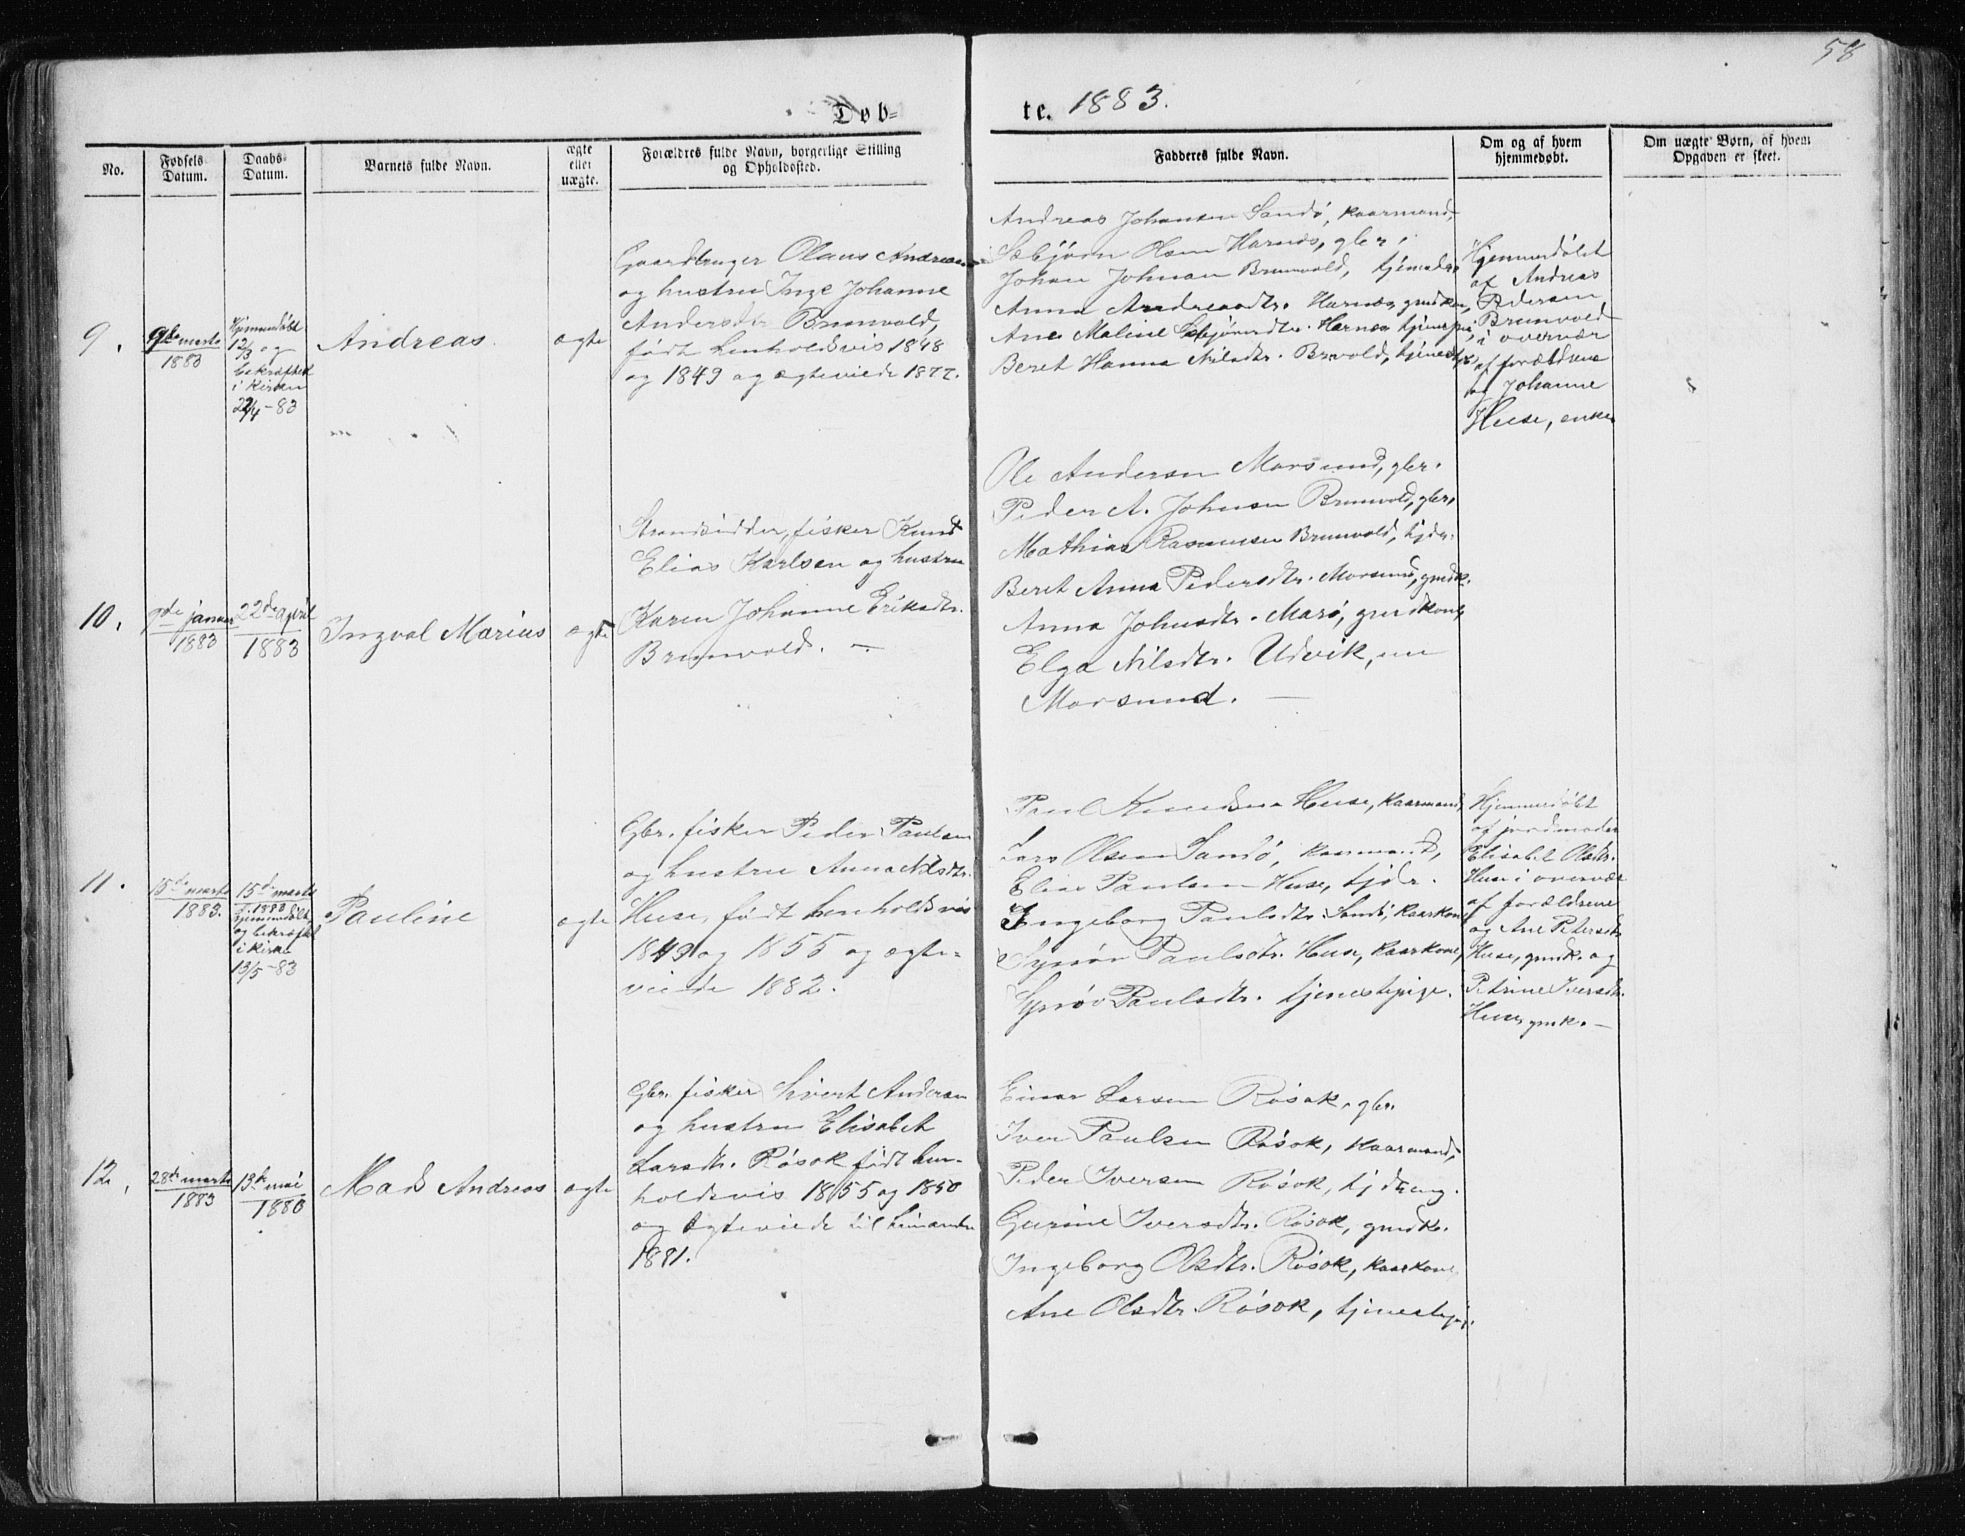 58
Døb-
te. 1883.
No.
Fødsels
Datum.
Daabs
Datum.
Barnets fulde Navn.
ægte
eller
uægte.
Forældres fulde Navn, borgerlige Stilling
og Opholdssted.
Fadderes fulde Navn.
Om og af hvem
hjemmedøbt.
Om uægte Børn, af hvem
Opgaven er skeet.
9.
9de marts
1883
Hjemmedöbt
12/3 og
bekræftet
i Kirken
22/4-83
Andreas.
ægte
Gaardbruger Olaus Andreasen
og hustru Inge Johanne
Andersdtr Brunvold,
født henholdsvis 1848
og 1849 og ægteviede 1877.
Andreas Johansen Sandö, kaarmand,
Sæbjörn Olsen Harnæs, gbr.
Johan Johnsen Brunvold, tjenedr.
Anna Andreasdtr. Harnæs, gmdkone,
Ane Maline Sæbjörnsdtr. Harnæs tjenepi,
Beret Hanna Nilsdtr. Brvold, tjenestpi,
Hjemmedöbt
af Andreas
Pedersen
Brunvold
i overvær
af forældrene
og Johanne
Huse, enke
10.
9de januar
1883
22de april
1883
Ingval Marius
ægte
Strandsidder, fisker Knud
Elias Karlsen og hustru
Karen Johanne Eriksdtr.
Brunvold. —
Ole Andersen Morsund, gbr.
Peder A. Johnsen Brunvold, gbr.
Mathias Rasmussen Brunvold, tjdr.
Beret Anna Pedersdtr. Morsund, gmdk.
Anna Johnsdtr. Marö, gmdkone,
Elga Nilsdtr. Udvik, nu
Morsund. —
11.
15de marts
1883.
15de marts
1883
hjemmedöbt
og bekræftet
i kirke
13/5-83
Pauline
ægte
Gbr. fisker Peder Paulsen
og hustru Anna Nilsdtr.
Huse, født henholdsvis
1849 og 1855 og ægte-
viede 1882.
Paul Knudsen Huse, kaarmand,
Lars Olsen Sandö, kaarmand,
Elias Paulsen Huse, tjdr.
Ingeborg Paulsdtr. Sandö, kaarkone
Synöv Paulsdtr. Huse, kaarkone,
Synöv Paulsdtr. tjenestepige.
Hjemmedöbt
af jordmoder
Elisabet Olsdtr.
Huse i overvær
af forældrene
og Ane Petersdtr.
Huse, gmdk. og
Petrine Iversdtr.
Huse, gmk. —
12.
28de marts
1883
13de mai
1880
Mads Andreas
ægte
Gbr. fisker Sivert Andersen
og hustru Elisabet
Larsdtr. Rösok født hen-
holdsvis 1855 og 1850
og ægteviede til hinanden
1881.
Einar Larsen Rösok, gbr.
Iver Paulsen Rösok, kaarmand,
Peder Iversen Rösok, tjdreng.
Gurine Iversdtr. Rösok, gmdk.
Ingeborg Olsdtr. Rösok, kaarkone
Ane Olsdtr. Rösok, tjenestepi.